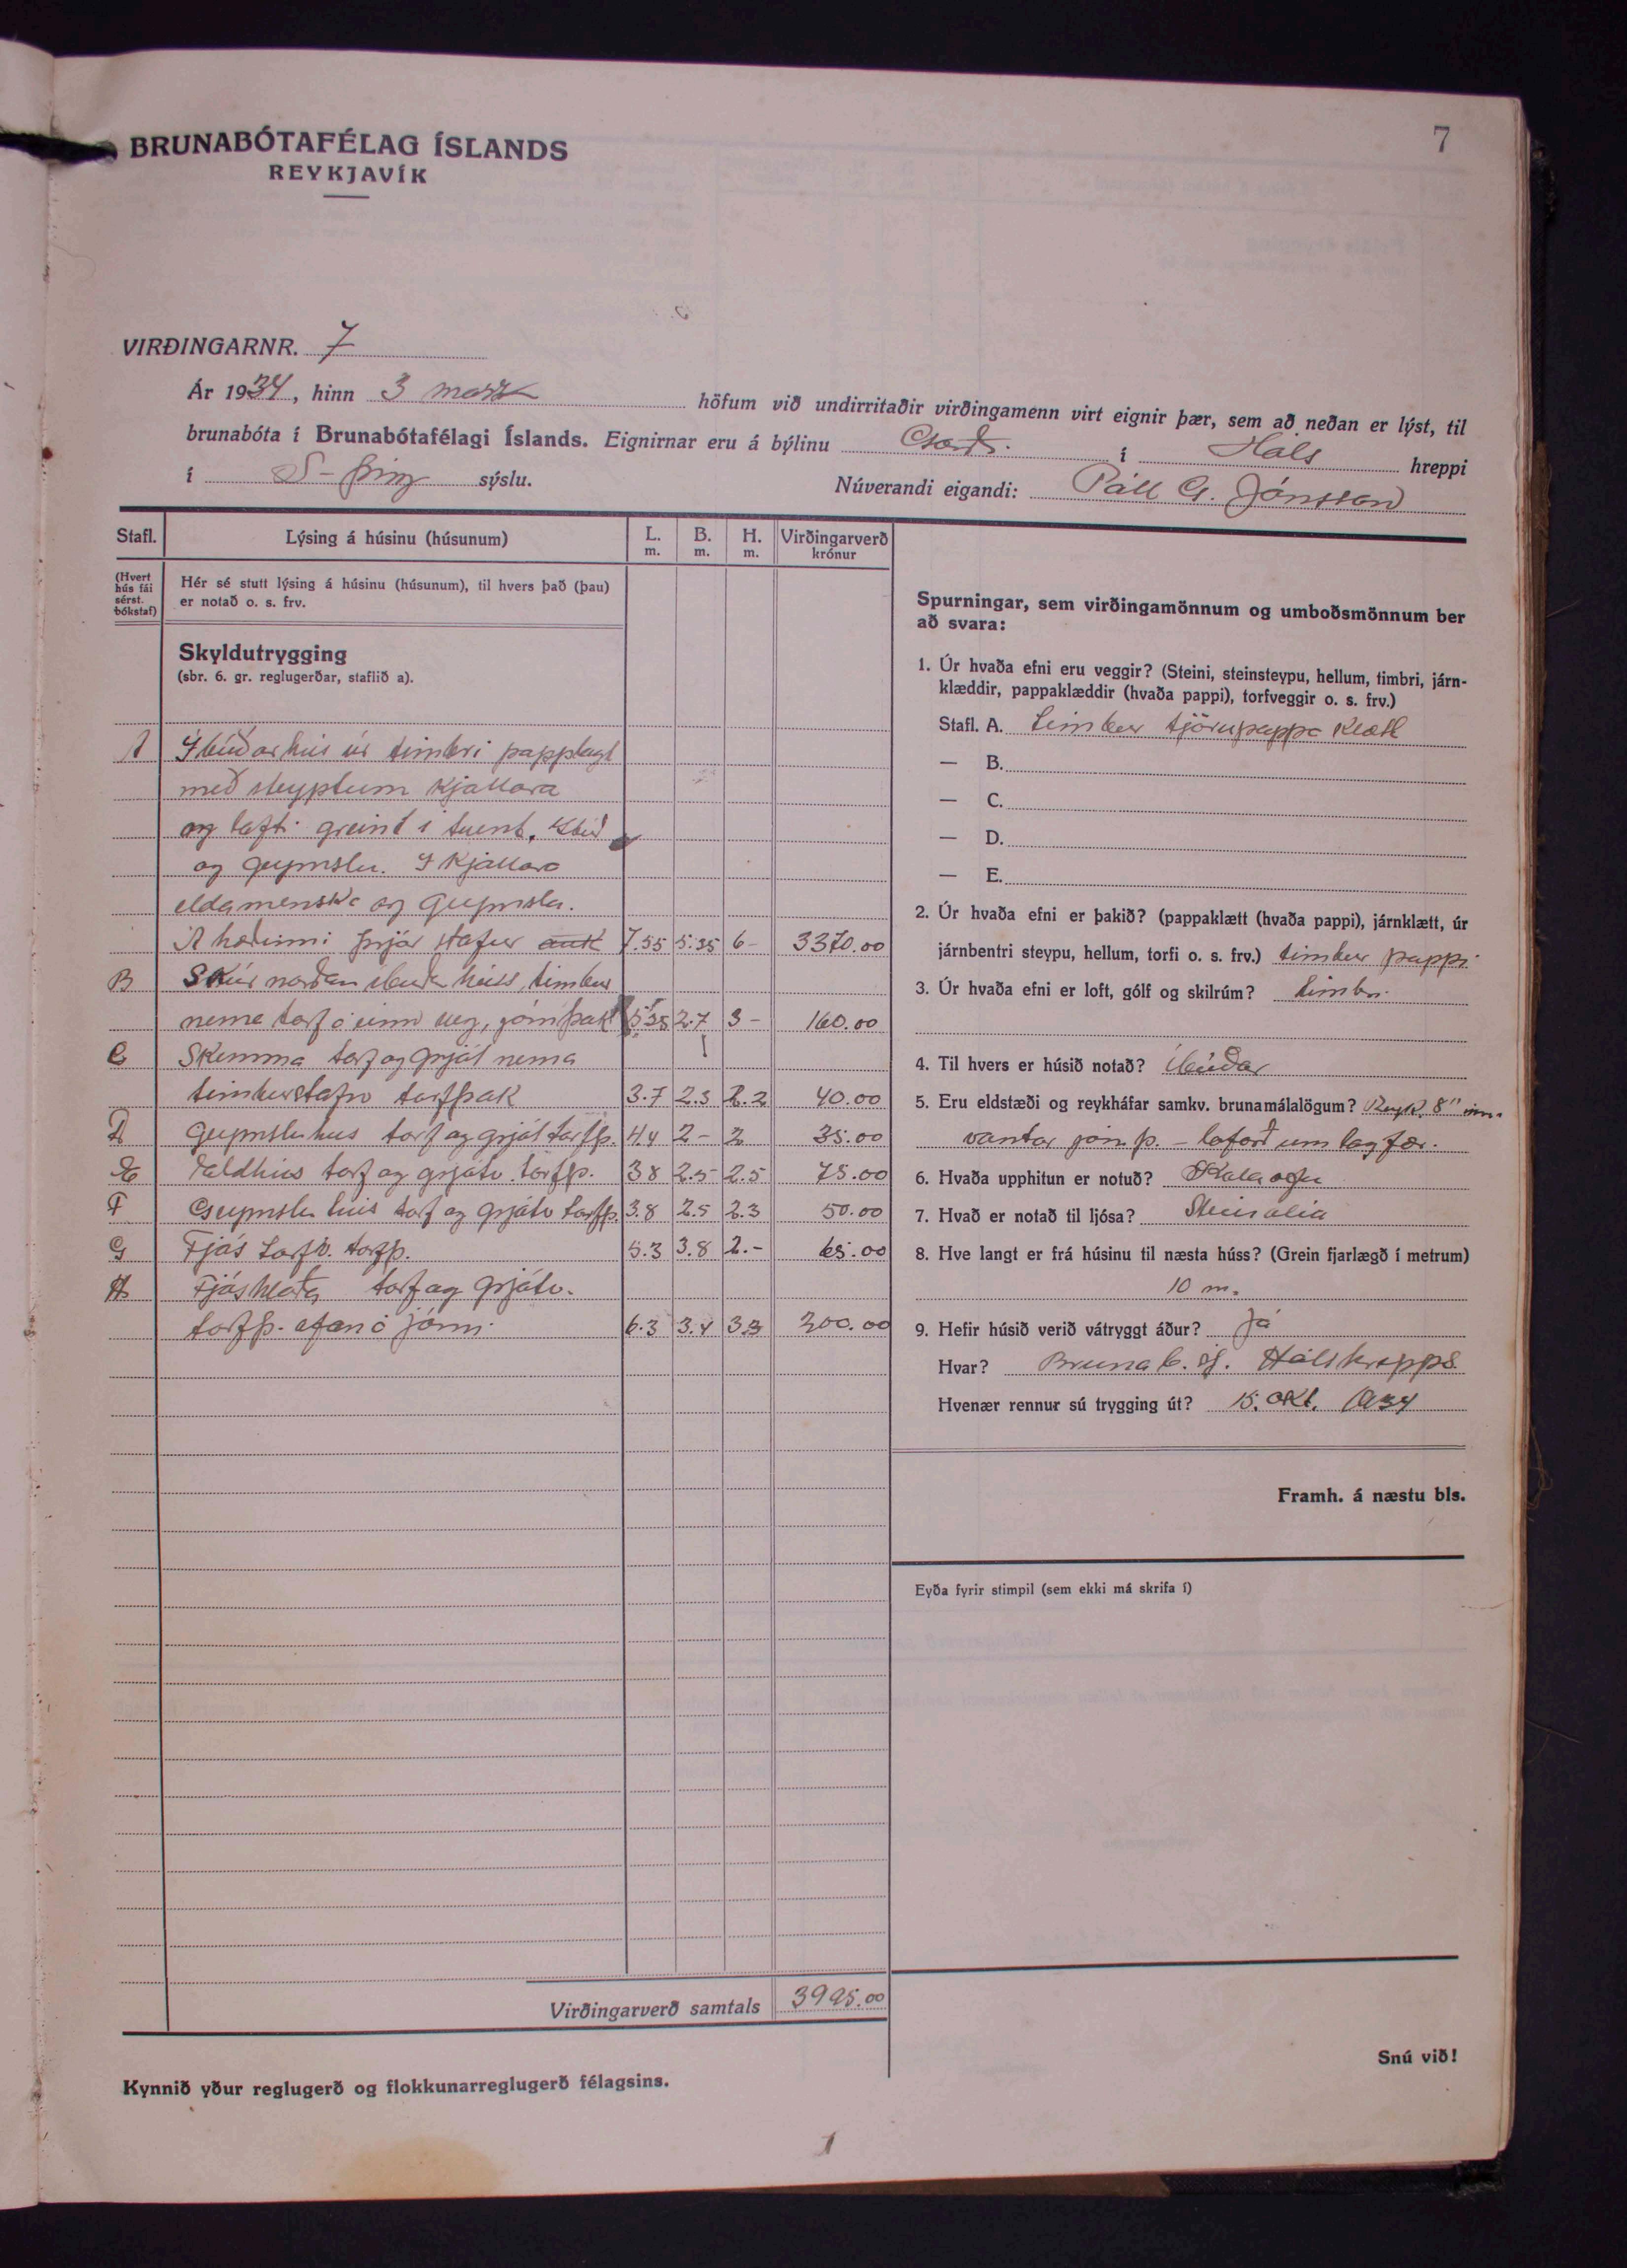 7
BRUNABÓTAFÉLAG ÍSLANDS
REYKJAVÍK
VIRÐINGARNR. 7
Ár 1934, hinn 3 marz höfum við undirritaðir virðingamenn virt eignir þær, sem að neðan er lýst, til
brunabóta í Brunabótafélagi Íslands. Eignirnar eru á býlinu Garði í Háls hreppi
í S-Þing sýslu. Núverandi eigandi: Páll G. Jónsson
Stafl. Lýsing á húsinu (húsunum) L. m. B. m. H. m. Virðingarverð krónur
(Hvert hús fái sérst. bókstaf)
Hér sé stutt lýsing á húsinu (húsunum), til hvers það (þau)
er notað o. s. frv.
Skyldutrygging
(sbr. 6. gr. reglugerðar, staflið a).
A Íbúðarhús úr timbri papplagt
með steyptum kjallara
og lofti greint í tvent. Íbúð
og geymslu. Í kjallara
eldamenska og geymsla.
Á hæðinni þrjár stofur 7.55 5.35 6- 3370.00
B Skúr norðan íbúðarhúss, timbur
nema torf á einn veg, járnþak 5.35 2.7 3- 160.00
C Skemma torf og grjót nema
timburstafn torfþak 3.7 2.3 2.2 40.00
D Geymsluhus torf og grjót torfþ. 4.4 2- 2 35.00
E Eldhús torf og grjóti torfþ. 3.8 2.5 2.5 75.00
F Geymslu hús torf og grjóti torfþ. 3.8 2.5 2.3 50.00
G Fjós torfv. torfþ. 5.3 3.8 2.- 65.00
H Fjóshlaða torf og grjóti.
torfþ. ofan á járni. 6.3 3.4 3.3 200.00
Virðingarverð samtals 3995.00
Kynnið yður reglugerð og flokkunarreglugerð félagsins.
Spurningar, sem virðingamönnum og umboðsmönnum ber
að svara:
1. Úr hvaða efni eru veggir? (Steini, steinsteypu, hellum, timbri, járn-
klæddir, pappaklæddir (hvaða pappi), torfveggir o. s. frv.)
Stafl. A. timbur tjörupappa klætt
— B.
— C.
— D.
— E.
2. Úr hvaða efni er þakið? (pappaklætt (hvaða pappi), járnklætt, úr
járnbentri steypu, hellum, torfi o. s. frv.) timbur pappi
3. Úr hvaða efni er loft, gólf og skilrúm? timbri
4. Til hvers er húsið notað? Íbúðar
5. Eru eldstæði og reykháfar samkv. brunamálalögum? Reyk. 8"
vantar járn þ. - loforð um lagfær.
6. Hvaða upphitun er notuð? Kola ofn
7. Hvað er notað til ljósa? Steinolía
8. Hve langt er frá húsinu til næsta húss? (Grein fjarlægð í metrum)
10 m.
9. Hefir húsið verið vátryggt áður? Já
Hvar? Brunab. sj. Hálshrepps
Hvenær rennur sú trygging út? 15. okt. 1934
Framh. á næstu bls.
Eyða fyrir stimpil (sem ekki má skrifa í)
Snú við!
1